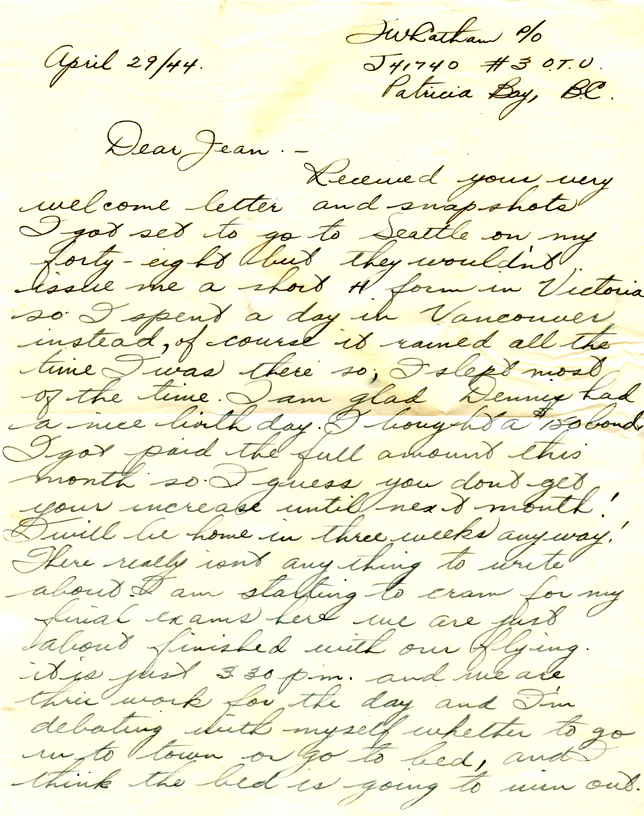 J Whatham P/O
April 29/44. J41740 #3 O.T.U.
Patricia Bay, BC.
Dear Jean. -
Received your very
welcome letter and snapshots
I got set to go to Seattle on my
forty-eight but they wouldn't
issue me a short H form in Victoria
so I spent a day in Vancouver
instead, of course it rained all the
time I was there so, I slept most
of the time. I am glad Dennis had
a nice birthday. I bought a $150 bond
I got paid the full amount this
month so I guess you dont get
your increase until next month!
I will be home in three weeks anyway!
There really isnt any thing to write
about I am starting to cram for my
final exams here we are just
about finished with our flying.
it is just 3.30 p.m. and we are
thru work for the day and I'm
debating with myself whether to go
in to town or go to bed, and I
think the bed is going to win out.